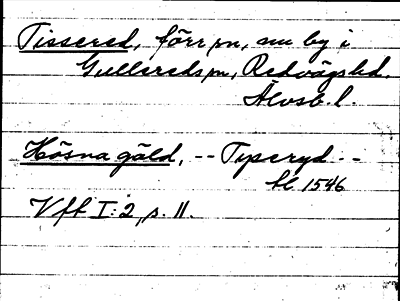 Tissered, förr sn, nu by i
Gullereds sn, Redvägs hd.
Älvsb. l.
Hösna gäld, -- Tyseryd --
bl 1546
Vft I:2, s. 11.